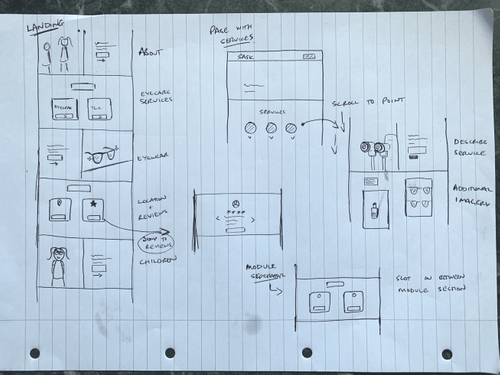 LANDING
ABOUT
EYECARE
SERVICES
EYECARE
EYEWEAR
LOCATION
+
REVIEWS
JUMP TO
REVIEWS
CHILDREN
PAGE WITH
SERVICES
SERVICES
SCROLL TO POINT
DESCRIBE
SERVICE
ADDITIONAL
IMAGERY
MODULE
SEPARATORS
SLOT IN BETWEEN
MODULE SECTION